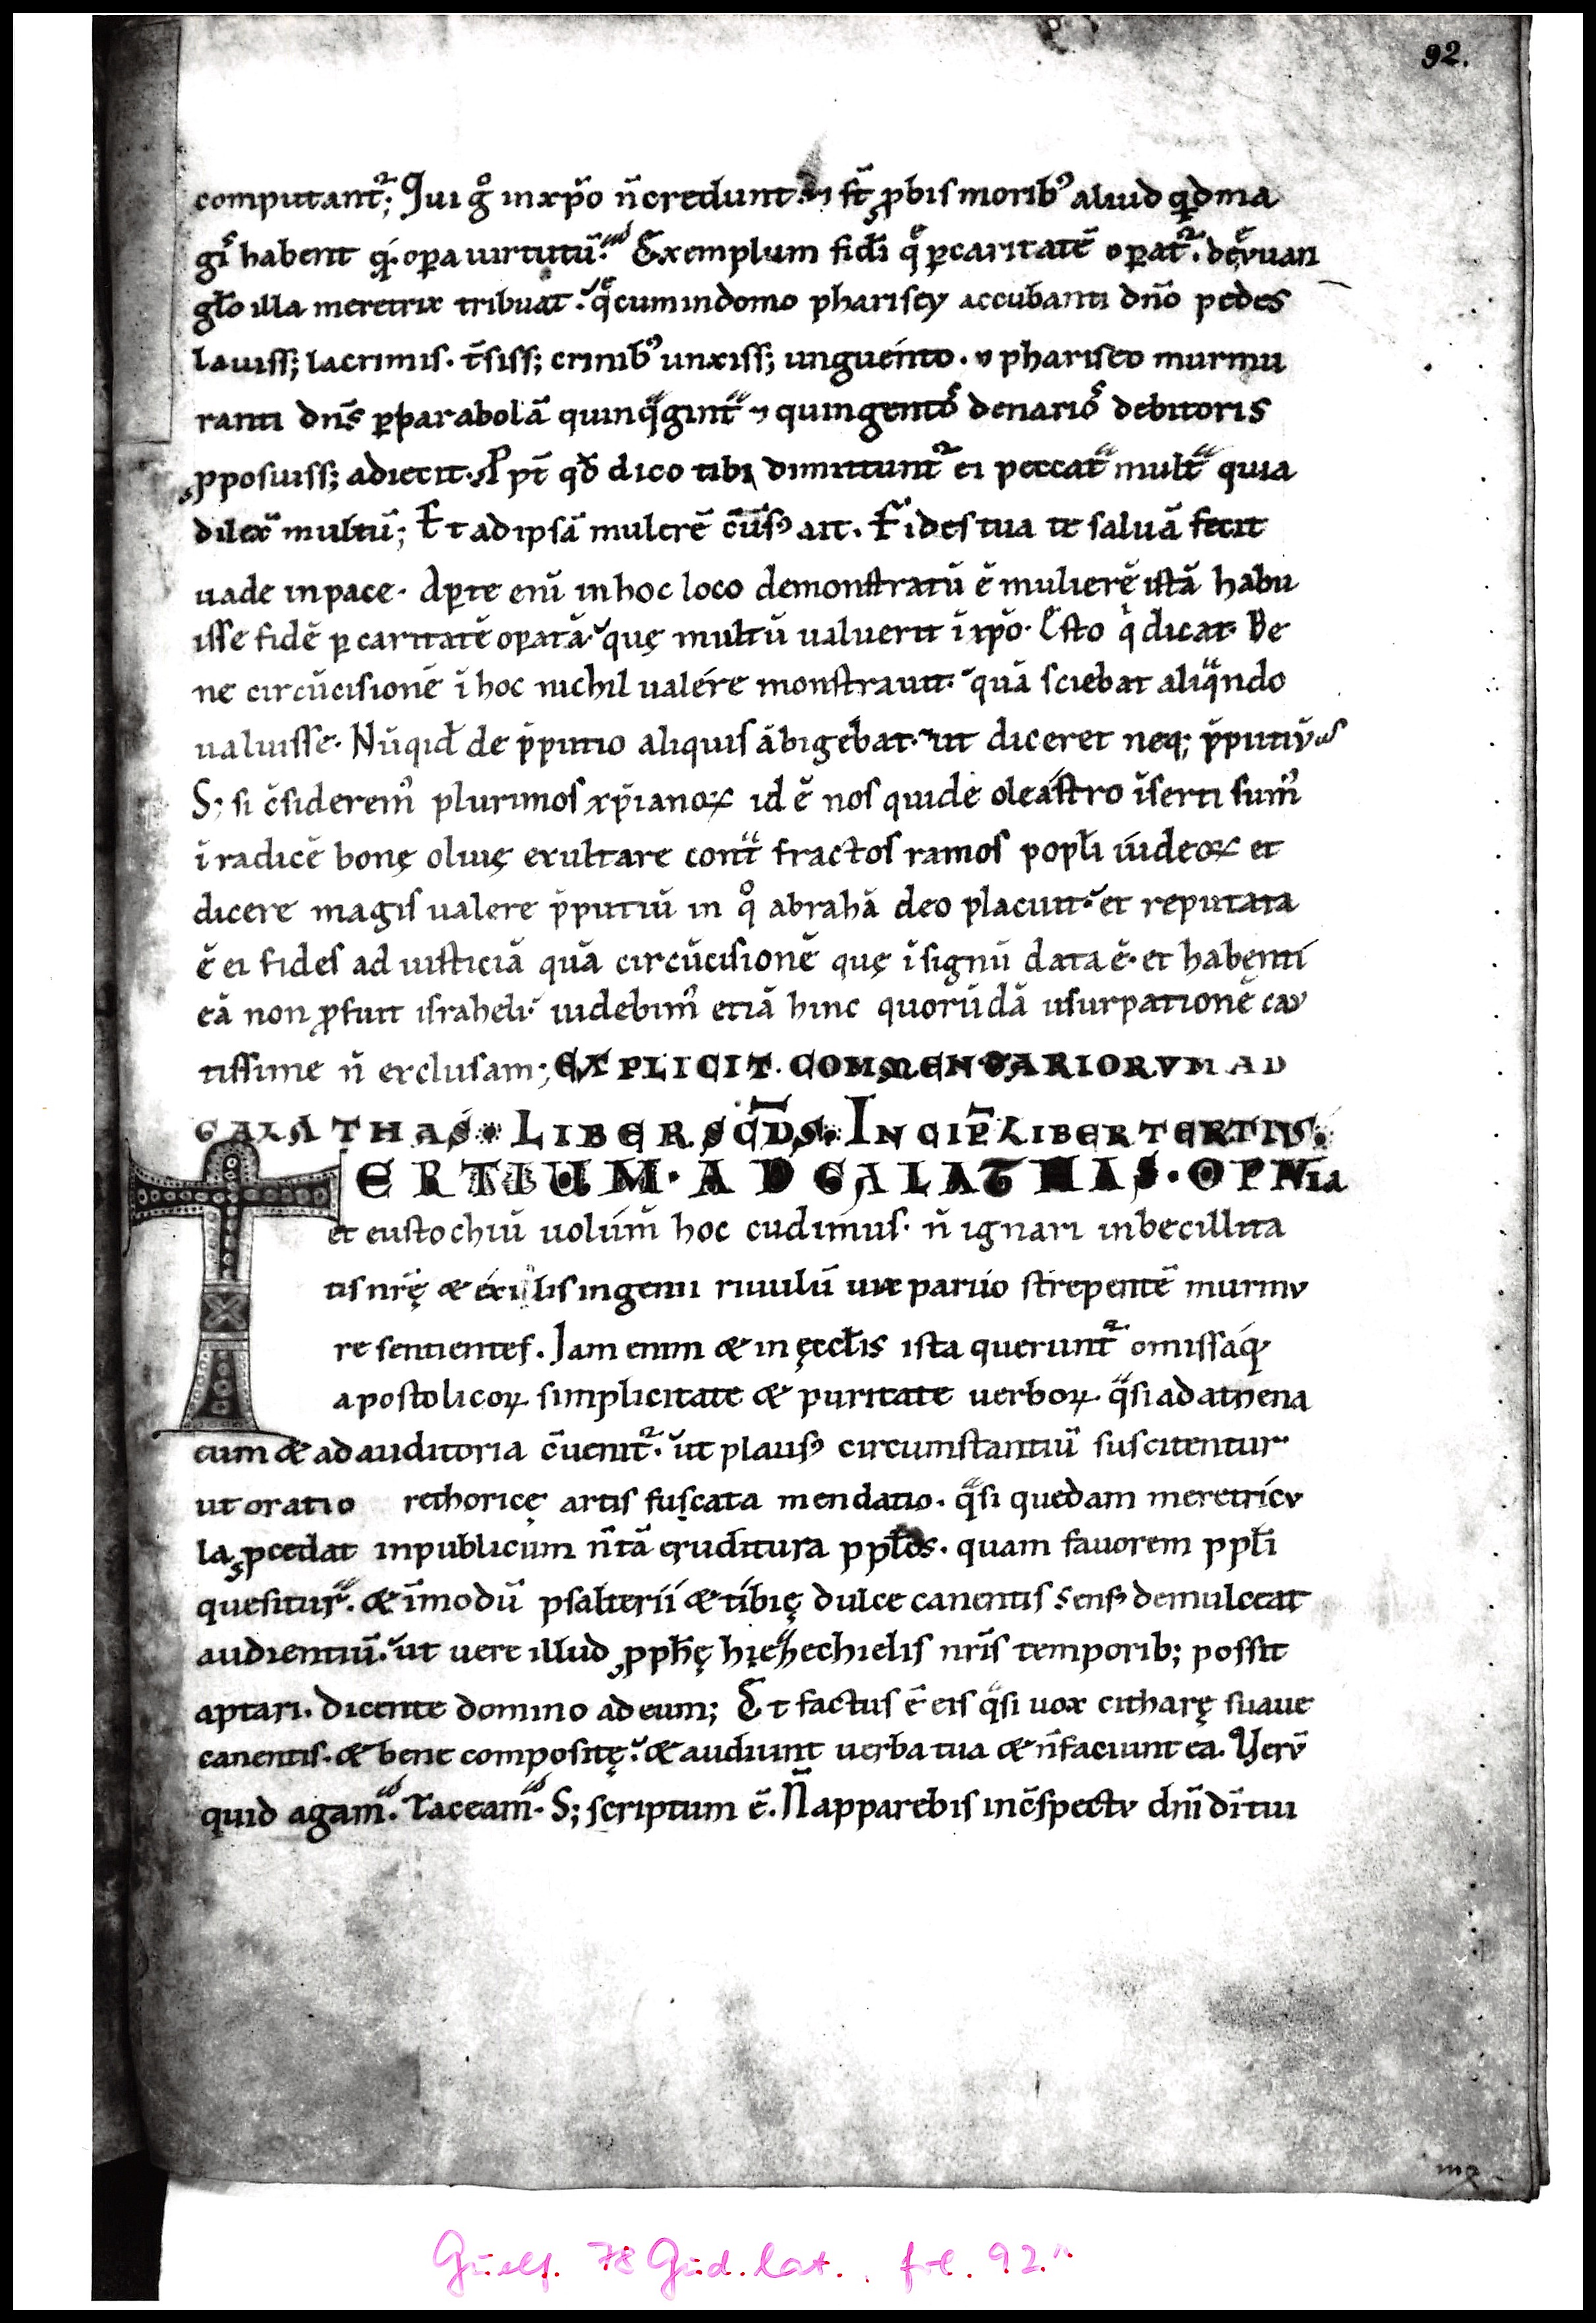 92.
computant᷑; Qui gͦ inxp̄o n̄credunt ⁊ st̄ ꝓbis morib᾽ aliud qͥdma
gͥs habent qͥ. oꝑa uirtutū. Exemplum fidei q̄ ꝑcaritatē oꝑat᷑. de euan
gl̄o illa meretrix tribuat. q̄cumindomo pharisey accubanti dn̄o pedes
lauiss; lacrimis. t̄siss; crinib᾽ unxiss; unguento. ⁊ phariseo murmu
ranti dn̄s ꝑparabolā quinqᵃgintᵃ ⁊ quingentoͬ denarioͬ debitoris
ꝓposuiss; adiecit. Ppt̄ qđ dico tibi dimittunt᷑ ei peccatᵃ multᵃ quia
dilexͭ multū; Et ad ipsā mulerē c̄u̅s᾽ ait. Fides tua te saluā fecit
uade inpace. aꝑte enī inhoc loco demonstratū ē mulierē istā habu
isse fidē ꝑ caritatē oꝑatā. quę multū ualuerit ī xp̄o. Esto qͥ dicat. Be
ne circūcisionē ī hoc nichil ualére monstrauit. quā sciebat aliqᵃndo
ualuisse. Nūqid de p̄putio aliquis ābigebat. ut diceret neq; p̄putiū
S; si c̄siderem᾽ plurimos xp̄ianoꝝ id ē nos quidē oleástro īserti sum᾽
ī radicē bonę oliuę exultare contᵃ fractos ramos popl̄i iudeoꝝ et
dicere magis ualere p̄putiū in qͦ abrahā deo placuit. et reputata
ē ei fides ad iusticiā quā circūcisionē quę īsignū data ē. et habenti
eā non ꝓfuit israheli. uidebim᾽ etiā hinc quorūdā usurpationē cau
tissime n̄ exclusam; EXPLICIT. COMMENTARIORVM AD
GALATHAS. LIBER SC̄DS. INCIP̄ LIBER TERTIUS.
TERTIUM. AD GALATHAS. O PAVLa
et eustochiū uolūm̄ hoc cudimus. n̄ ignari inbecillita
tis nr̄ę & éxilis ingenii riuulū uix paruo strepentē murmu
re sentientes. Iam enim & in ęccl̄is ista querunt᷑ omissaq;
apostolicoꝝ simplicitate & puritate uerboꝝ qᵃsi ad athena
eum & ad auditoria c̄uenit᷑. ut plaus᾽ circumstantiū suscitentur
ut oratio rethoricę artis fuscata mendatio. qᵃsi quedam meretricu
la ꝓcedat inpublicum n̄tā eruditura ppl̄os. quam fauorem ppl̄i
quesiturᵃ. & īmodū psalterii & tibię dulce canentis sens᾽ demulceat
audientiū. ut uere illud ꝓph̄ę hiezechielis nr̄is temporib; possit
aptari. dicente domino ad eum; Et factus ē eis qᵃsi uox citharę suaue
canentis. & bene compositę. & audiunt uerba tua & n̄faciunt ea. Verū
quid agam᾽. Taceam᾽. S; scriptum ē. N̄ apparebis inc̄spectu dn̄i dī tui
Guelf. 78 Gud. lat. fol. 92.r